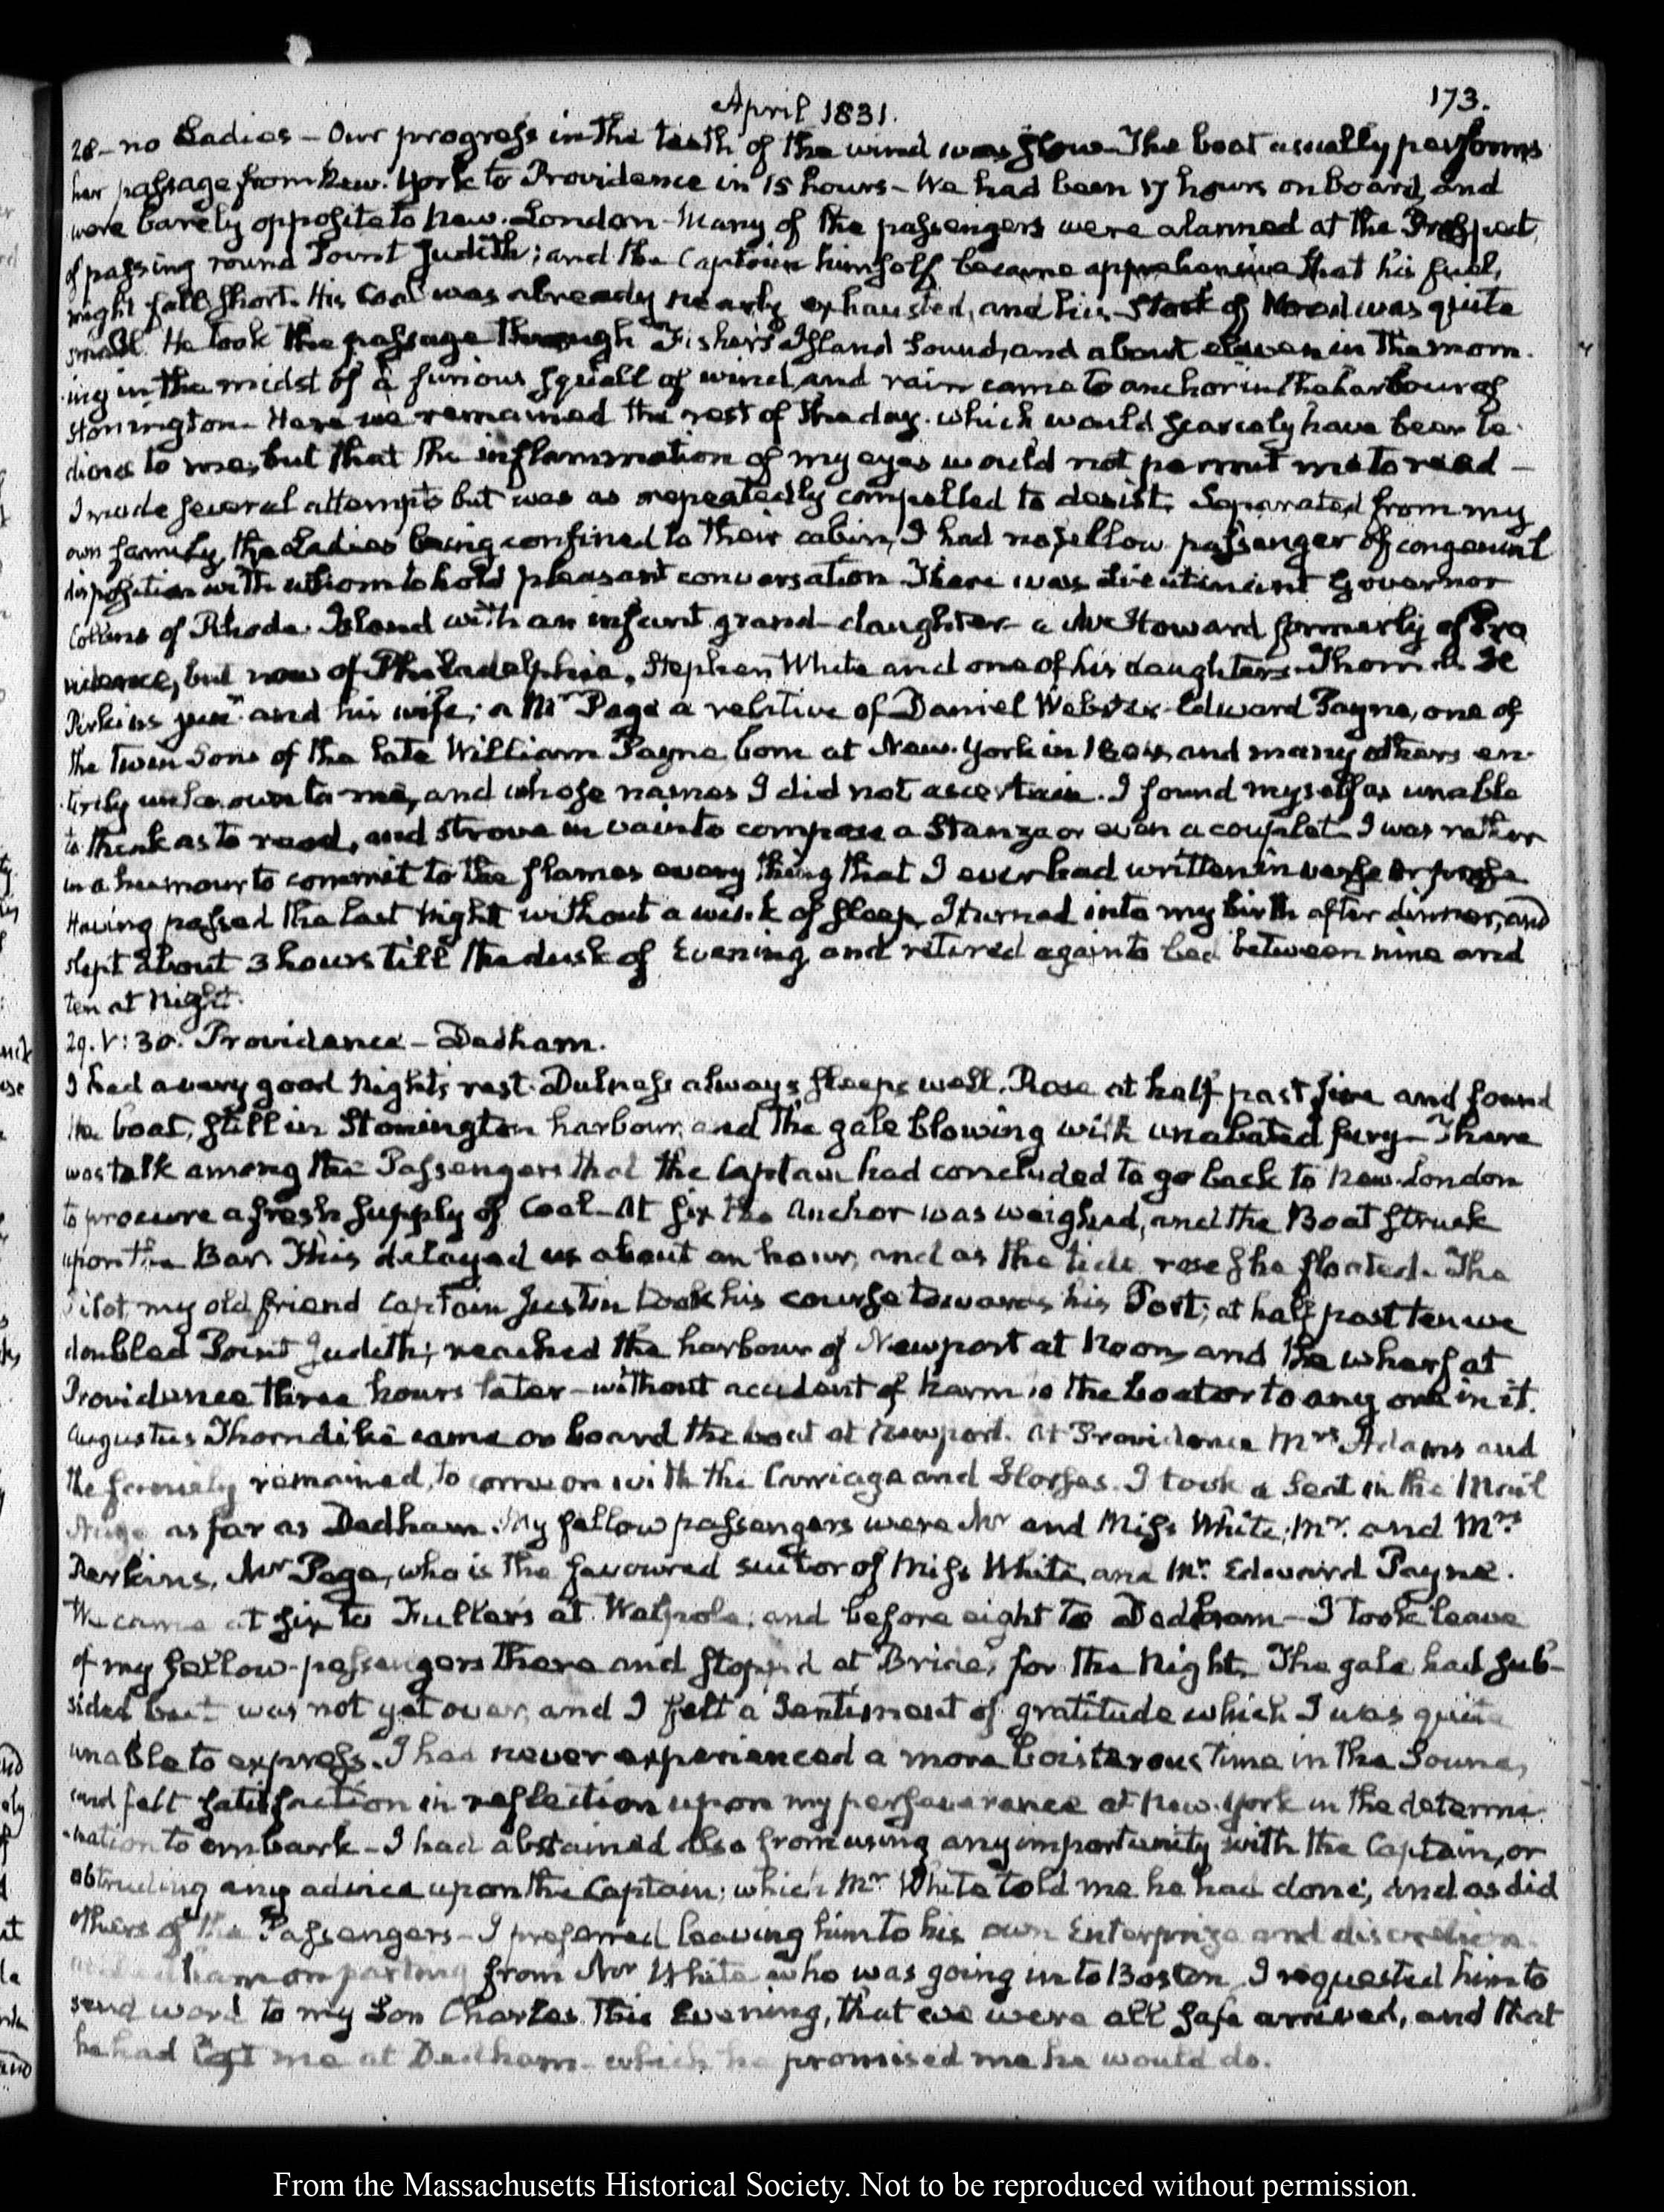 April 1831.
173.
28 - no Ladies - Our progress in the teeth of the wind was slow - The boat usually performs
her passage from New-York to Providence in 15 hours - We had been 17 hours on board, and
were barely opposite to New-London - Many of the passengers were alarmed at the Prospect
of passing round Point Judith; and the Captain himself became apprehensive that his fuel,
might fall short. His Coal was already nearly exhausted, and his Stock of Wood was quite
small. He took the passage through Fisher's Island Sound, and about eleven in the morn-
ing in the midst of a furious squall of wind and rain came to anchor in the harbour of
Stonington - Here we remained the rest of the day - which would scarcely have been te-
dious to me, but that the inflammation of my eyes would not permit me to read -
I made several attempts but was as repeatedly compelled to desist. Separated from my
own family, the Ladies being confined to their cabin, I had no fellow passenger of congenial
disposition with whom to hold pleasant conversation - There was Lieutenant Governor
Collins of Rhode Island with an infant grand-daughter - a Mr Howard formerly of Pro
vidence, but now of Philadelphia, Stephen White and one of his daughters - Thomas
Perkins junr. and his wife; a Mr Page a relative of Daniel Webster - Edward Payne, one of
the twin Sons of the late William Payne born at New-York in and many others en-
tirely unknown to me, and whose names I did not ascertain. I found myself as unable
to think as to read, and strove in vain to compose a Stanza or even a couplet - I was rather
in a humour to commit to the flames every thing that I ever had written in verse or prose
Having passed the last Night without a wink of sleep, I turned into my birth after dinner, and
slept about 3 hours till the dusk of Evening, and retired again to bed between nine and
ten at Night.
29. V:30. Providence - Dedham.
I had a very good Night's rest. Dulness always sleeps well. Rose at half past five and found
the boat, still in Stonington harbour, and the gale blowing with unabated fury - There
was talk among the Passengers that the Captain had concluded to go back to New-London
to procure a fresh supply of Coal - At six the Anchor was weighed, and the Boat struck
upon the Bar. This delayed us about an hour, and as the tide rose she floated. The
Pilot, my old friend Captain Justin took his course towards his Port; at half past ten we
doubled Point Judith; reached the harbour of Newport at Noon, and the wharf at
Providence three hours later - without accident of harm to the boat or to any one in it.
Augustus Thorndike came on board the boat at Newport. At Providence Mrs. Adams and
the family remained, to come on with the Carriage and Horses. I took a Seat in the Mail
Stage as far as Dedham. My fellow passengers were Mr and Miss White, Mr. and Mrs
Perkins, Mr Page, who is the favoured suitor of Miss White, and Mr. Edward Payne.
We came at six to Fuller's at Walpole; and before eight to Dedham - I took leave
of my fellow-passengers there and stopped at Bride's for the Night. The gale had sub-
sided but was not yet over, and I felt a Sentiment of gratitude which I was quite
unable to express. I had never experienced a more boisterous time in the Sound,
and felt satisfaction in reflection upon my perseverance at New-York in the determi-
-nation to embark - I had abstained also from using any importunity with the Captain, or
obtruding any advice upon the Captain; which Mr White told me he had done; and as did
others of the Passengers - I preferred leaving him to his own Enterprize and discretion.
on parting from Mr White who was going in to Boston I requested him to
send word to my Son Charles this Evening, that we were all safe arrived, and that
he had left me at Dedham - which he promised me he would do.
From the Massachusetts Historical Society. Not to be reproduced without permission.